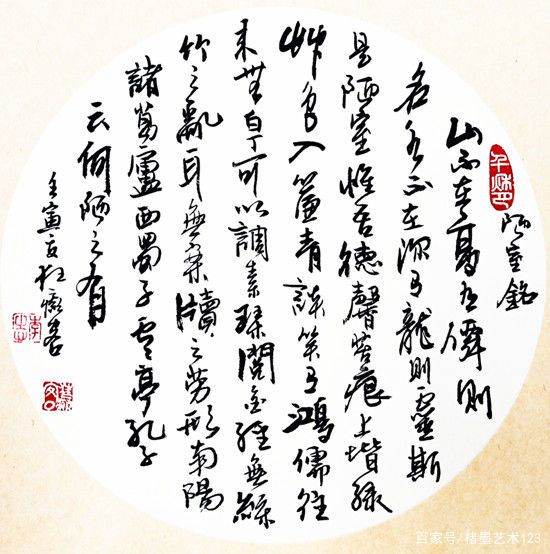 陋室銘
山不在高有僊則
名水不在深有龍則靈斯
是陋室惟吾德馨苔痕上堦緑
艸色入簾青談笑有鴻儒往
来無白丁可以調素琴閱金經無絲
竹之亂耳無案牘之勞形南陽
諸葛廬西蜀子雲亭孔子
云何陋之有
壬寅夏狂客
百家号/楮墨艺术123